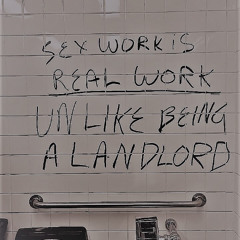 SEX WORK IS
REAL WORK
UNLIKE BEING
A LANDLORD